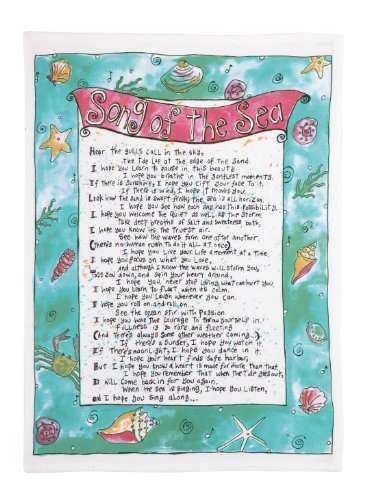 Song of the Sea
Hear the gulls call in the sky,
the tide lap at the edge of the sand.
I hope you learn to pause in this beauty.
I hope you breathe in the songlest moments.
If there is sunshine, I hope you lift your face to it.
If there is wind, I hope it moves you.
Look how the sand is swept freshly, the sea is all horizon.
I hope you see how each day has this possibility.
I hope you welcome the quiet as well as the storm.
Take deep breaths of salt and sweetness both.
I hope you know its the truest air.
See how the waves form one after another
(there's no human rush to do it all at once)
I hope you live your life a moment at a time.
I hope you focus on what you love,
and although I know the waves will storm you,
toss you down, and spin your heart around,
I hope you never stop loving what can hurt you.
I hope you learn to float when it's calm.
I hope you laugh wherever you can.
I hope you roll on and roll on...
See the ocean stir with passion.
I hope you have the courage to throw yourself in.
Fullness is so rare and fleeting
(And there's always some other weather coming...)
If there's a sunset, I hope you watch it.
If there's moonlight, I hope you dance in it.
I hope your heart finds safe harbor,
But I hope you know a heart is made for more than that.
I hope you remember that when the tide goes out,
it will come back in for you again.
When the sea is singing, I hope you listen,
and I hope you sing along...